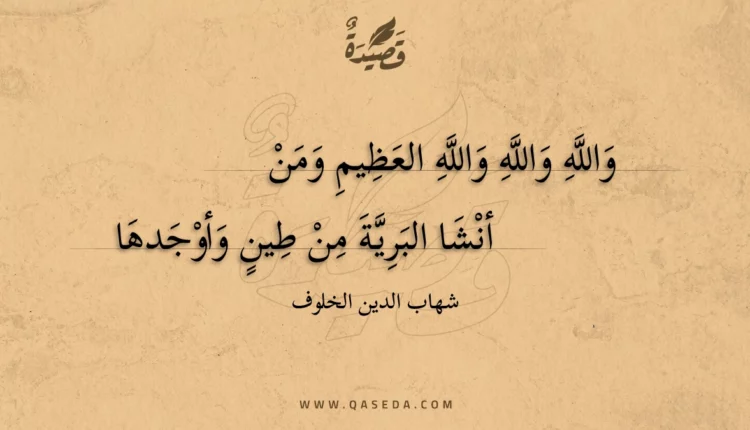 قَصِيْدَةٌ
وَاللَّهِ وَاللَّهِ وَاللَّهِ العَظِيمِ وَمَنْ
أنْشَا البَرِيَّةَ مِنْ طِينٍ وَأوْجَدهَا
شهاب الدين الخلوف
WWW.QASEDA.COM